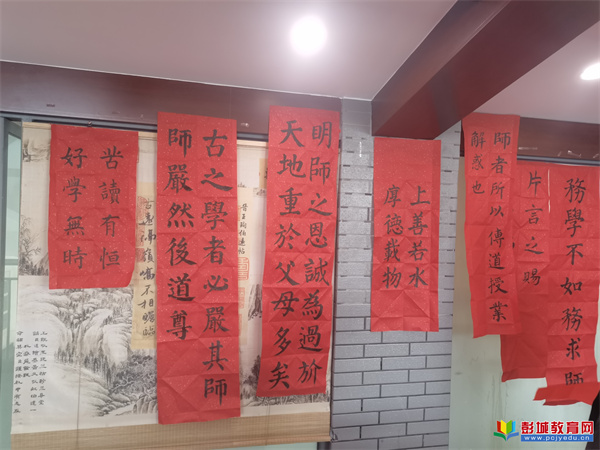 苦讀有恒
好學無時
古之學者必嚴其師
師嚴然後道尊
晉王珣伯遠帖
明師之恩誠為過於
天地重於父母多矣
上善若水
厚德載物
師者所以傳道授業
解惑也
務學不如務求師
片言之賜
彭城教育网
www.pcjyedu.cn